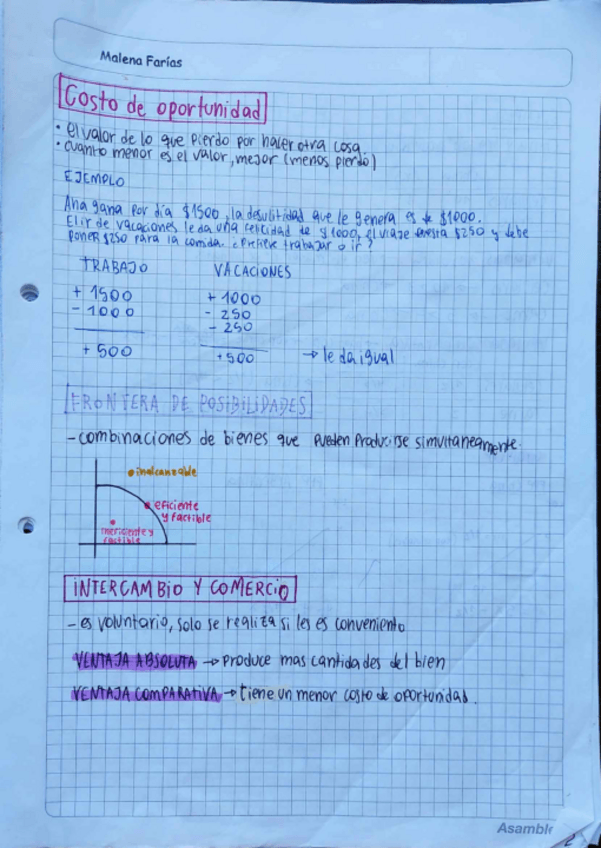 Malena Farías
Costo de oportunidad
• el valor de lo que pierdo por hacer otra cosa.
• cuanto menor es el valor, mejor (menos pierdo)
EJEMPLO
Ana gana por día $1500, la desutilidad que le genera es $1000.
El ir de vacaciones le da una felicidad de $1000, el viaje cuesta $250 y debe
poner $250 para la comida. ¿Prefiere trabajar o ir?
TRABAJO VACACIONES
+ 1500 + 1000
- 1000 - 250
- 250
+ 500 + 500 → le da igual
FRONTERA DE POSIBILIDADES
- combinaciones de bienes que pueden producirse simultaneamente.
inalcanzable
eficiente
y factible
ineficiente y
factible
INTERCAMBIO Y COMERCIO
- es voluntario, solo se realiza si les es conveniento
VENTAJA ABSOLUTA → produce mas cantidades del bien
VENTAJA COMPARATIVA → tiene un menor costo de oportunidad.
Asamble
2